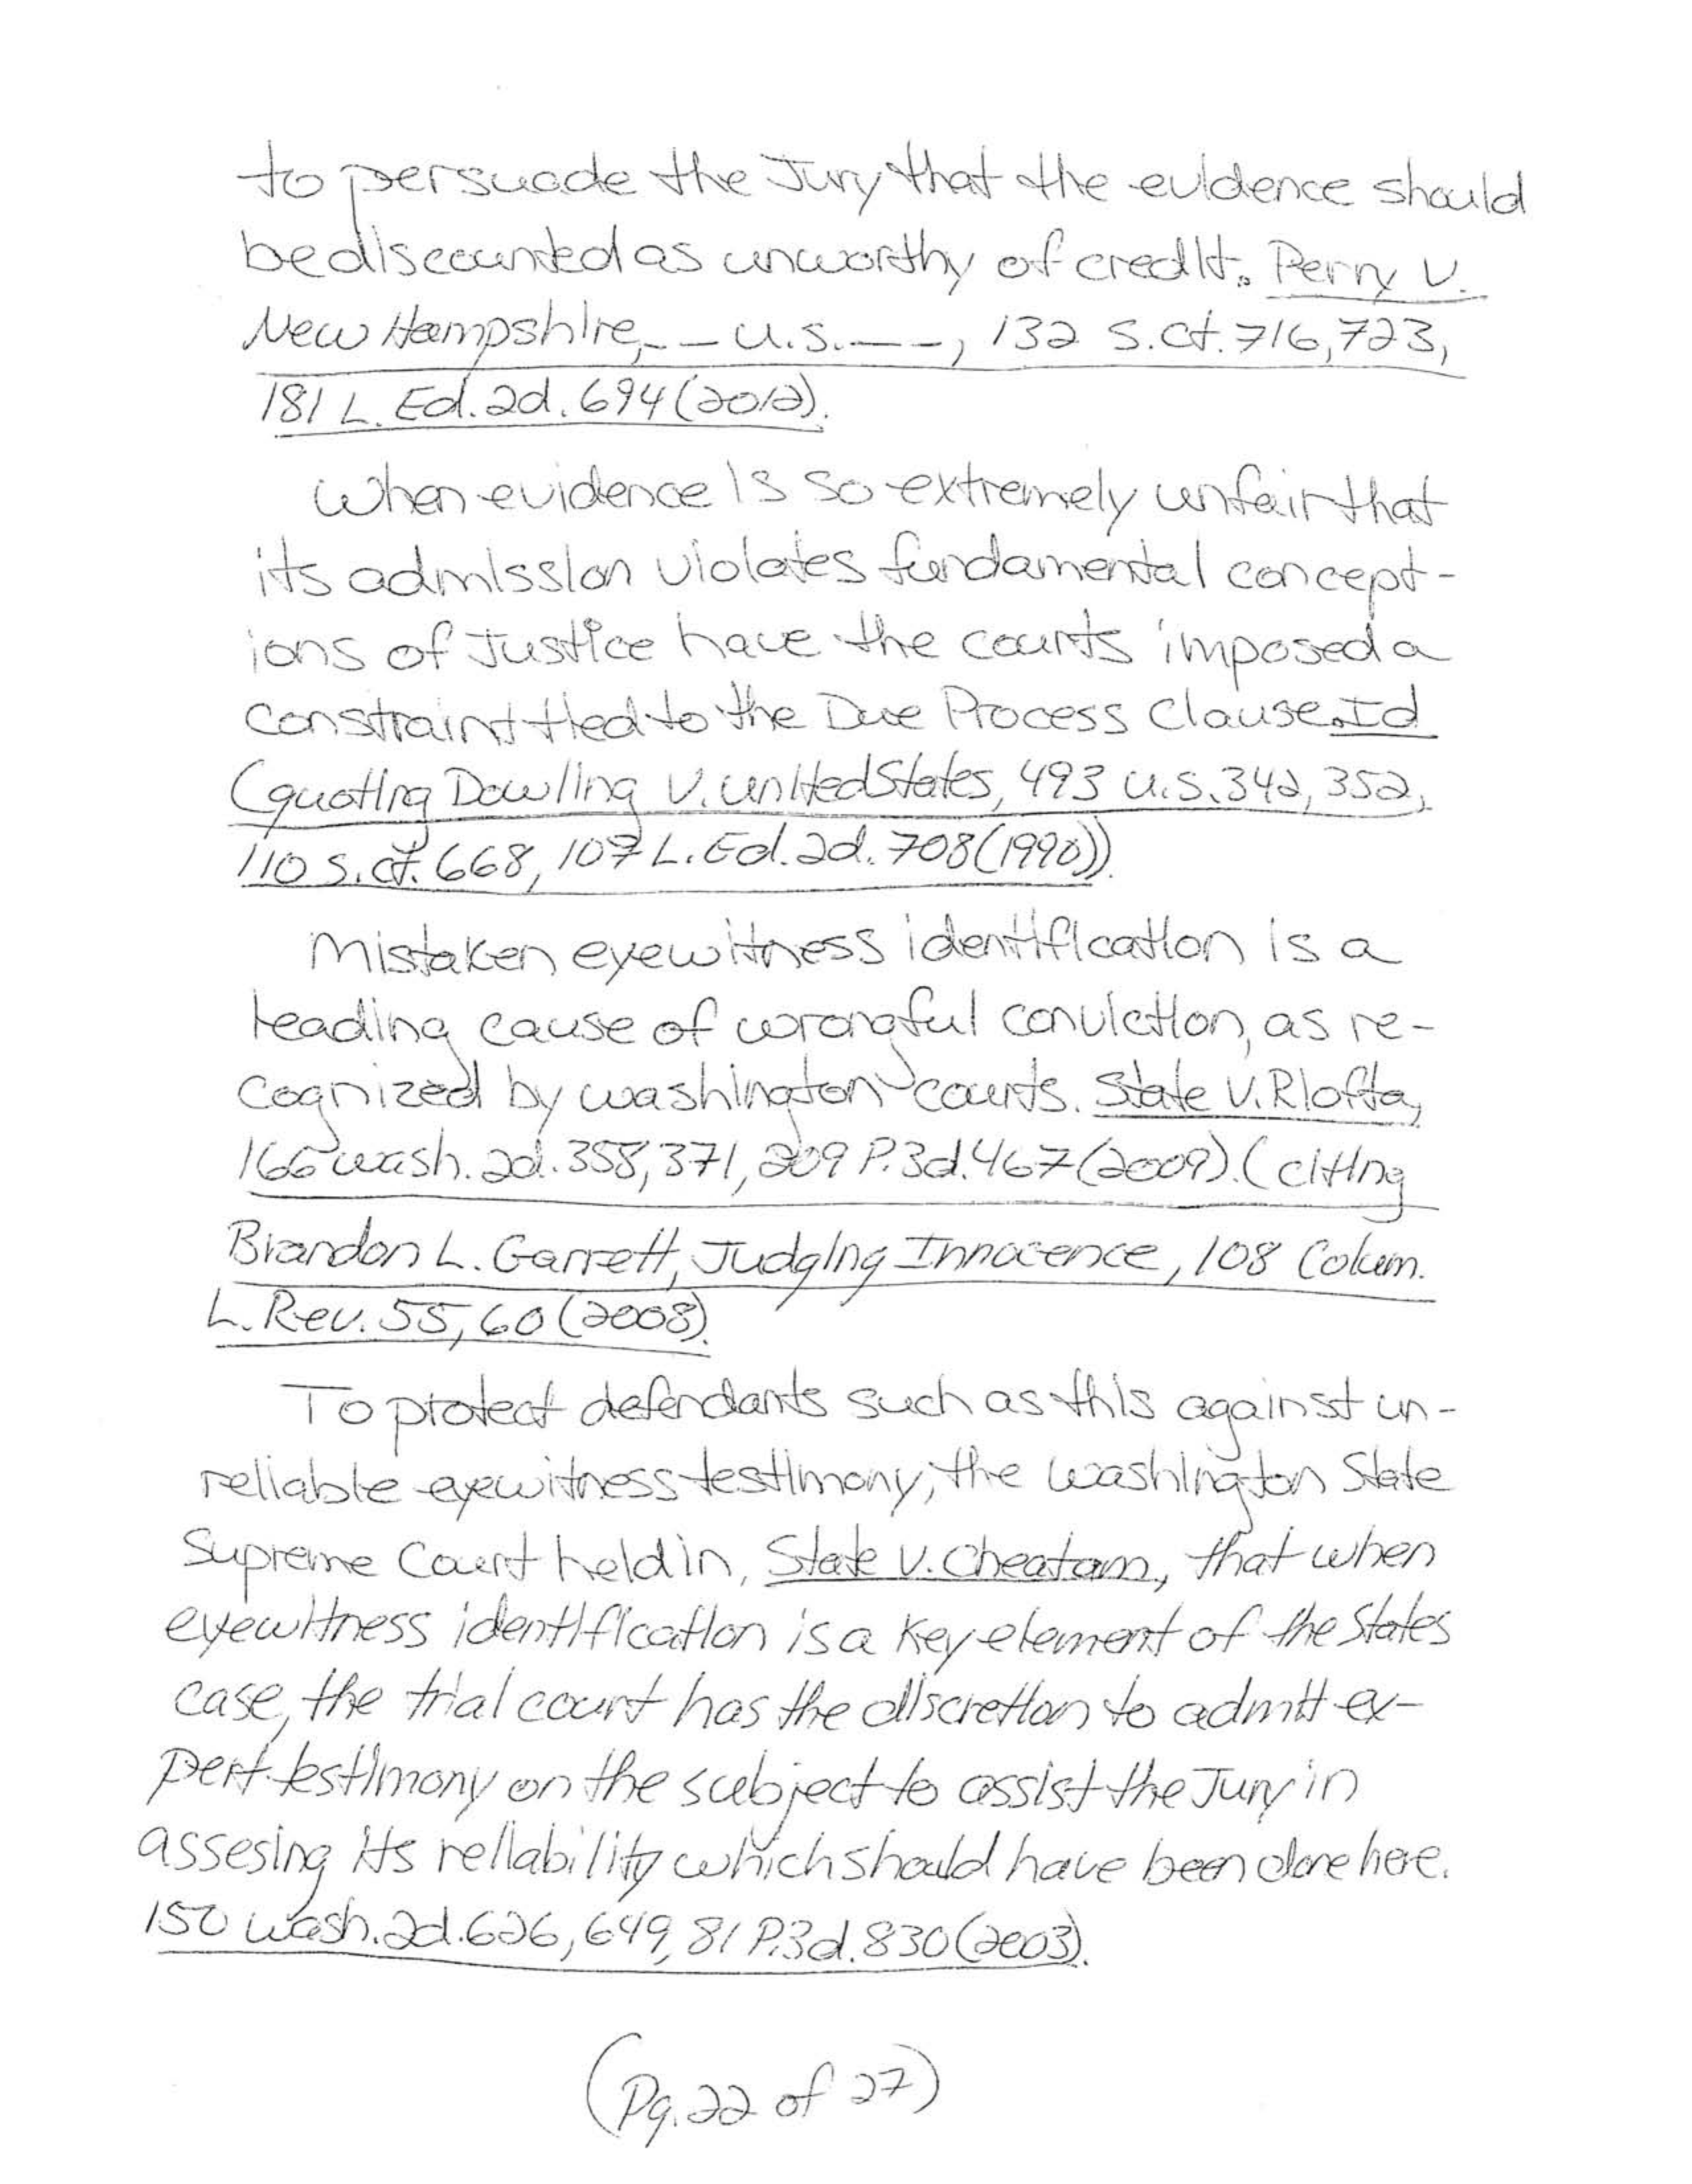 to persuade the Jury that the evidence should
be discounted as unworthy of credit. Perry v.
New Hampshire, _ _ U.S. _ _ _, 132 S.Ct. 716, 723,
181 L. Ed. 2d. 694 (2012).
When evidence is so extremely unfair that
its admission violates fundamental concept-
ions of Justice have the courts imposed a
constraint tied to the Due Process Clause. Id
(quoting Dowling v. United States, 493 U.S. 342, 352,
110 S.ct. 668, 107 L. Ed. 2d. 708 (1990)).
Mistaken eyewitness identification is a
leading cause of wrongful conviction, as re-
cognized by washington courts. State v. Riofta,
166 wash. 2d. 358, 371, 209 P.3d. 467 (2009). (citing
Brandon L. Garrett, Judging Innocence, 108 Colum.
L. Rev. 55, 60 (2008).
To protect defendants such as this against un-
reliable eyewitness testimony, the Washington State
Supreme Court held in, State v. Cheatam, that when
eyewitness identification is a key element of the States
case, the trial court has the discretion to admit ex-
pert testimony on the subject to assist the Jury in
assesing its reliability which should have been done here.
150 wash. 2d. 626, 649, 81 P.3d. 830 (2003).
(Pg. 22 of 27)